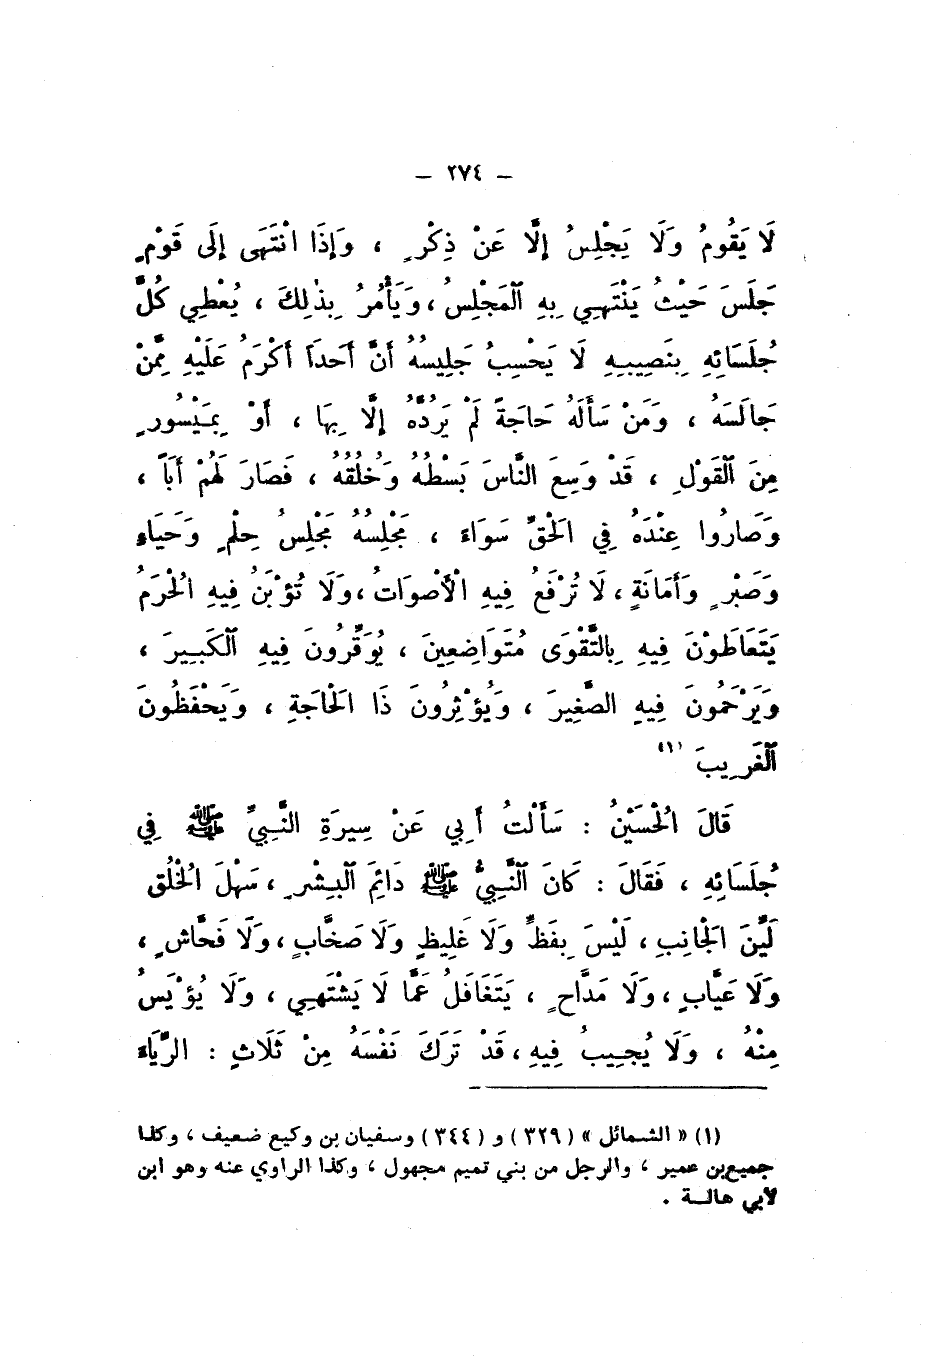 – ٢٧٤ –
لَا يَقُومُ وَلَا يَجْلِسُ إِلَّا عَنْ ذِكْرٍ ، وَإِذَا انْتَهَى إِلَى قَوْمٍ
جَلَسَ حَيْثُ يَنْتَهِي بِهِ الْمَجْلِسُ ، وَيَأْمُرُ بِذٰلِكَ ، يُعْطِي كُلَّ
جُلَسَائِهِ بِنَصِيبِهِ لَا يَحْسِبُ جَلِيسُهُ أَنَّ أَحَداً أَكْرَمُ عَلَيْهِ مِمَّنْ
جَالَسَهُ ، وَمَنْ سَأَلَهُ حَاجَةً لَمْ يَرُدَّهُ إِلَّا بِهَا ، أَوْ بِمَيْسُورٍ
مِنَ الْقَوْلِ ، قَدْ وَسِعَ النَّاسَ بَسْطُهُ وَخُلُقُهُ ، فَصَارَ لَهُمْ أَبَاً ،
وَصَارُوا عِنْدَهُ فِي الْحَقِّ سَوَاءً ، مَجْلِسُهُ مَجْلِسُ حِلْمٍ وَحَيَاءٍ
وَصَبْرٍ وَأَمَانَةٍ ، لَا تُرْفَعُ فِيهِ الْأَصْوَاتُ ، وَلَا تُؤْبَنُ فِيهِ الْحُرَمُ
يَتَعَاطَوْنَ فِيهِ بِالتَّقْوَى مُتَوَاضِعِينَ ، يُوَقِّرُونَ فِيهِ الْكَبِيرَ ،
وَيَرْحَمُونَ فِيهِ الصَّغِيرَ ، وَيُؤْثِرُونَ ذَا الْحَاجَةِ ، وَيَحْفَظُونَ
الْغَرِيبَ (١)
قَالَ الْحُسَيْنُ : سَأَلْتُ أَبِي عَنْ سِيرَةِ النَّبِيِّ ﷺ فِي
جُلَسَائِهِ ، فَقَالَ : كَانَ النَّبِيُّ ﷺ دَائِمَ الْبِشْرِ ، سَهْلَ الْخُلُقِ
لَيِّنَ الْجَانِبِ ، لَيْسَ بِفَظٍّ وَلَا غَلِيظٍ وَلَا صَخَّابٍ ، وَلَا فَحَّاشٍ ،
وَلَا عَيَّابٍ ، وَلَا مَدَّاحٍ ، يَتَغَافَلُ عَمَّا لَا يَشْتَهِي ، وَلَا يُؤْيَسُ
مِنْهُ ، وَلَا يُجِيبُ فِيهِ ، قَدْ تَرَكَ نَفْسَهُ مِنْ ثَلَاثٍ : الرِّيَاءِ
(١) « الشمائل » (٣٢٩) و (٣٤٤) وسفيان بن وكيع ضعيف ، وكذا
جميع بن عمير ، والرجل من بني تميم مجهول ، وكذا الراوي عنه وهو ابن
لأبي هالــة .